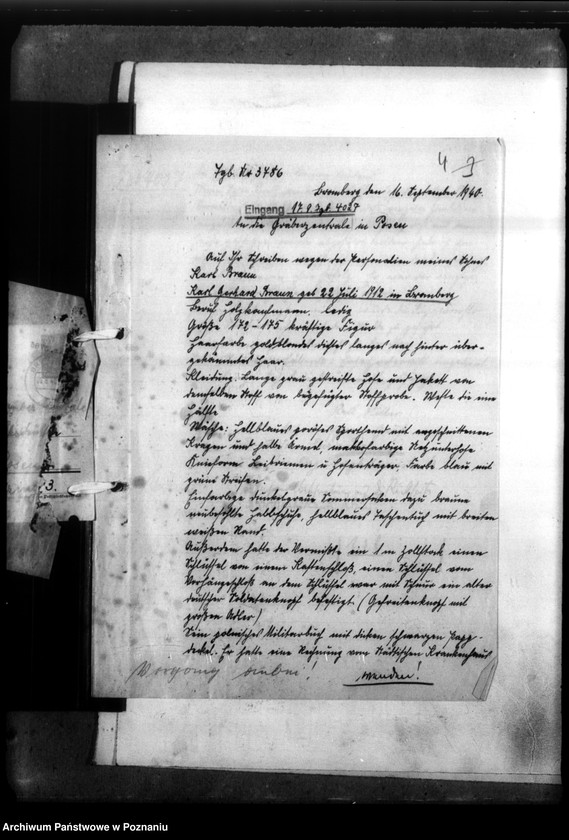 4 9
Tgb. Nr 3786
Bromberg den 16. September 1940.
Eingang 17.9. Tgb. 4027
An die Gräberzentrale in Posen
Auf Ihr Schreiben wegen der Personalien meines Sohnes
Karl Braun
Karl Gerhard Braun geb 22 Juli 1912 in Bromberg
Beruf Holzkaufmann. ledig
Größe 172-175 kräftige Figur
Haarfarbe goldblondes dichtes langes nach hinten über-
gekämmtes Haar.
Kleidung. Lange grau gestreifte Hose und Jakett von
demselben Stoff von beigefügter Stoffprobe. Weste die eine
Hälfte
Wäsche: Hellblaues poröses Sporthemd mit angeschnittenen
Kragen und halbe Ärmel, makkofarbige Netzunterhose
Knieform Leibriemen und Hosenträger. Farbe blau mit
grau Streifen.
Einfarbige dunkelgraue Sommersocken dazu braune
neubesohlte Halbschuhe, hellblaues Taschentuch mit breiten
weißen Rand.
Außerdem hatte der Vermißte ein 1 m Zollstock einen
Schlüssel von einem Kastenschloß, einen Schlüssel vom
Vorhängeschloß an dem Schlüssel war mit Schnur ein alter
deutscher Soldatenknopf befestigt. (Gefreitenknopf mit
großen Adler)
Sein polnisches Militärbuch mit dicken schwarzen Papp-
deckel. Er hatte eine Rechnung vom Städtischen Krankenhaus
Vorgang anbei!
wenden!
3.
Archiwum Państwowe w Poznaniu